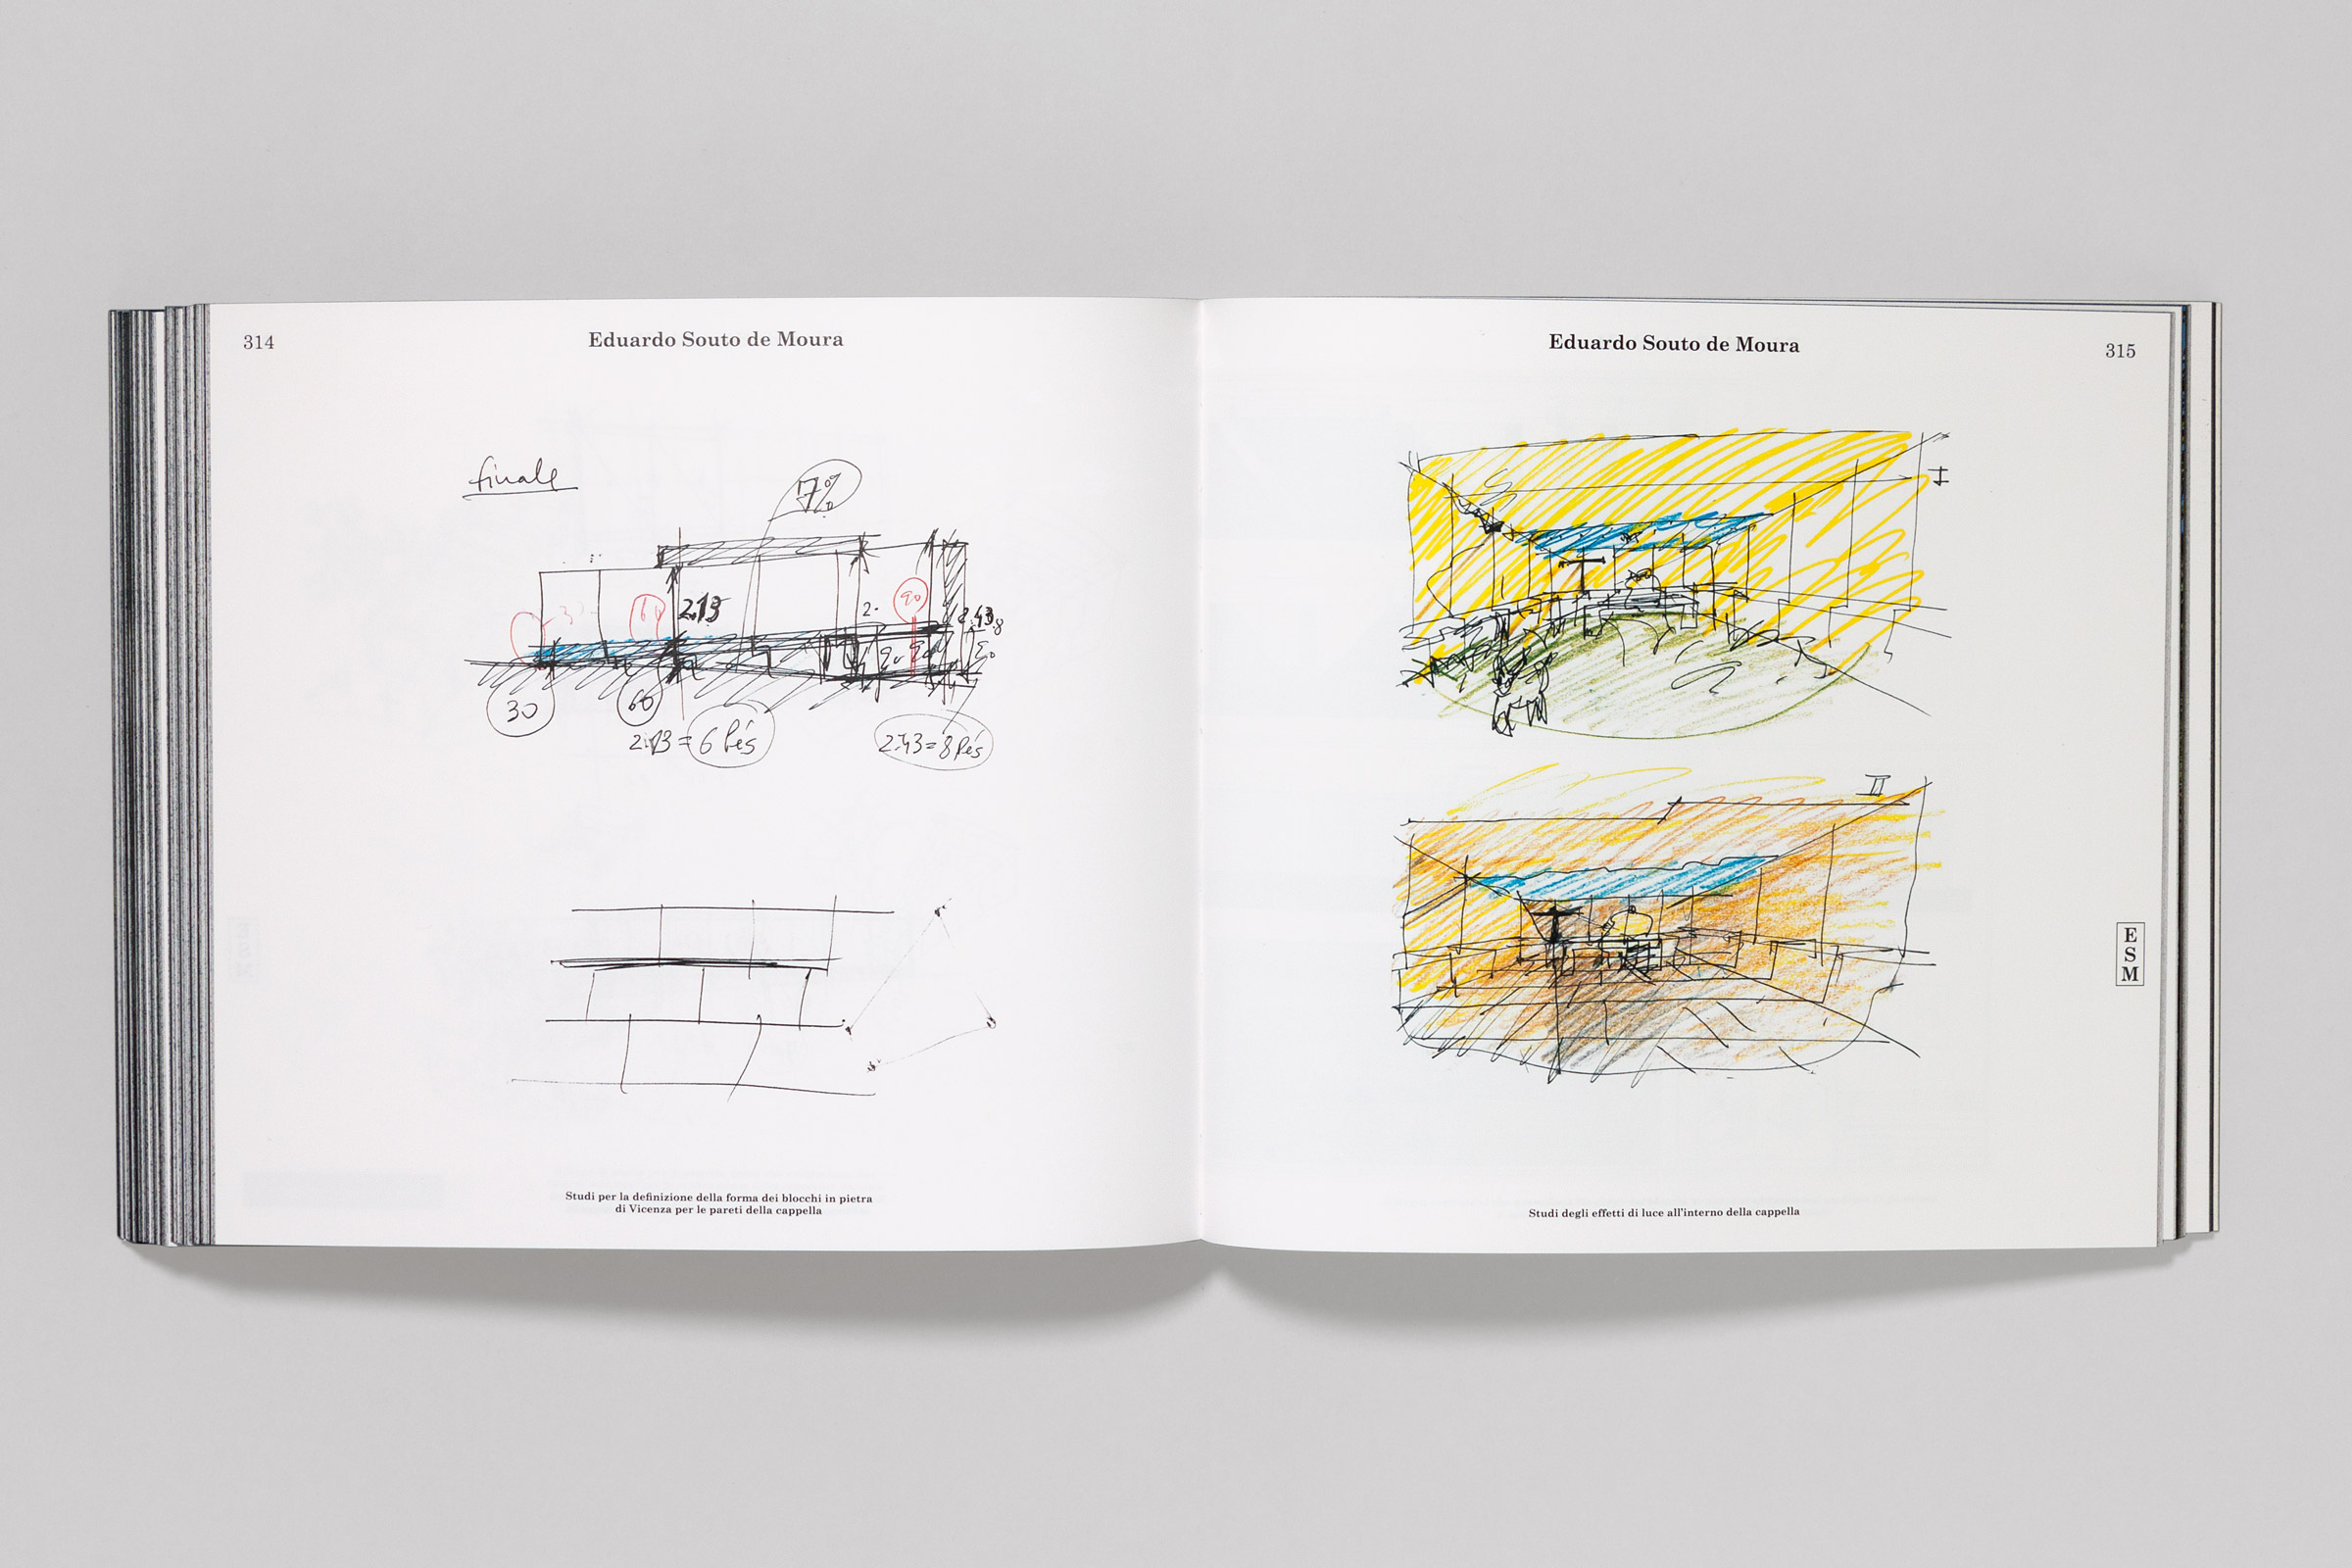 314
Eduardo Souto de Moura
finale
7%
60
2.13
90
2.
2.43
30
60
2.13 = 6 Pés
2.43 = 8 Pés
Studi per la definizione della forma dei blocchi in pietra
di Vicenza per le pareti della cappella
Eduardo Souto de Moura
315
I
II
E
S
M
Studi degli effetti di luce all'interno della cappella